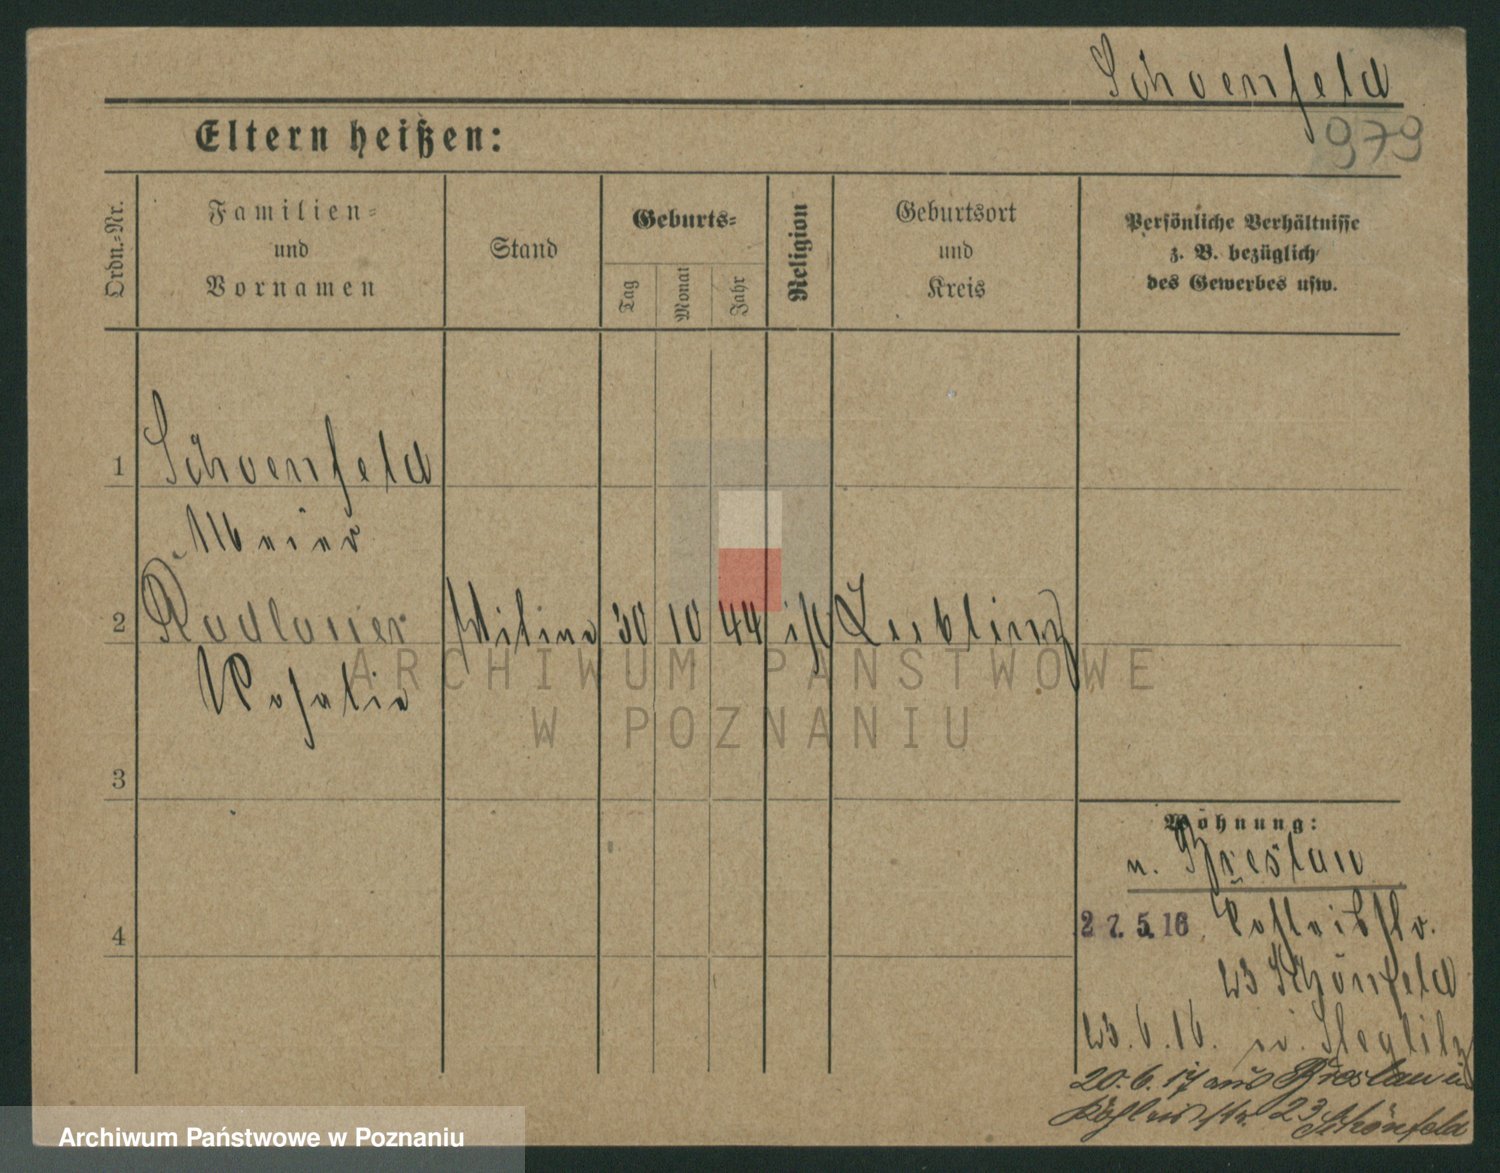 Schoenfeld
979
Eltern heißen:
Ordn.-Nr.
Familien-
und
Vornamen
Stand
Geburts-
Tag
Monat
Jahr
Religion
Geburtsort
und
Kreis
Persönliche Verhältnisse
z. B. bezüglich
des Gewerbes usw.
1
Schoenfeld
Meier
2
Radlauer
Rosalie
30
10
44
Lublinz
ARCHIWUM PAŃSTWOWE
W POZNANIU
3
Wohnung:
n. Breslau
4
27. 5. 16
23 Schönfeld
23. 6. 16. n. Steglitz
20. 6. 17 aus Breslau
23 Schönfeld
Archiwum Państwowe w Poznaniu